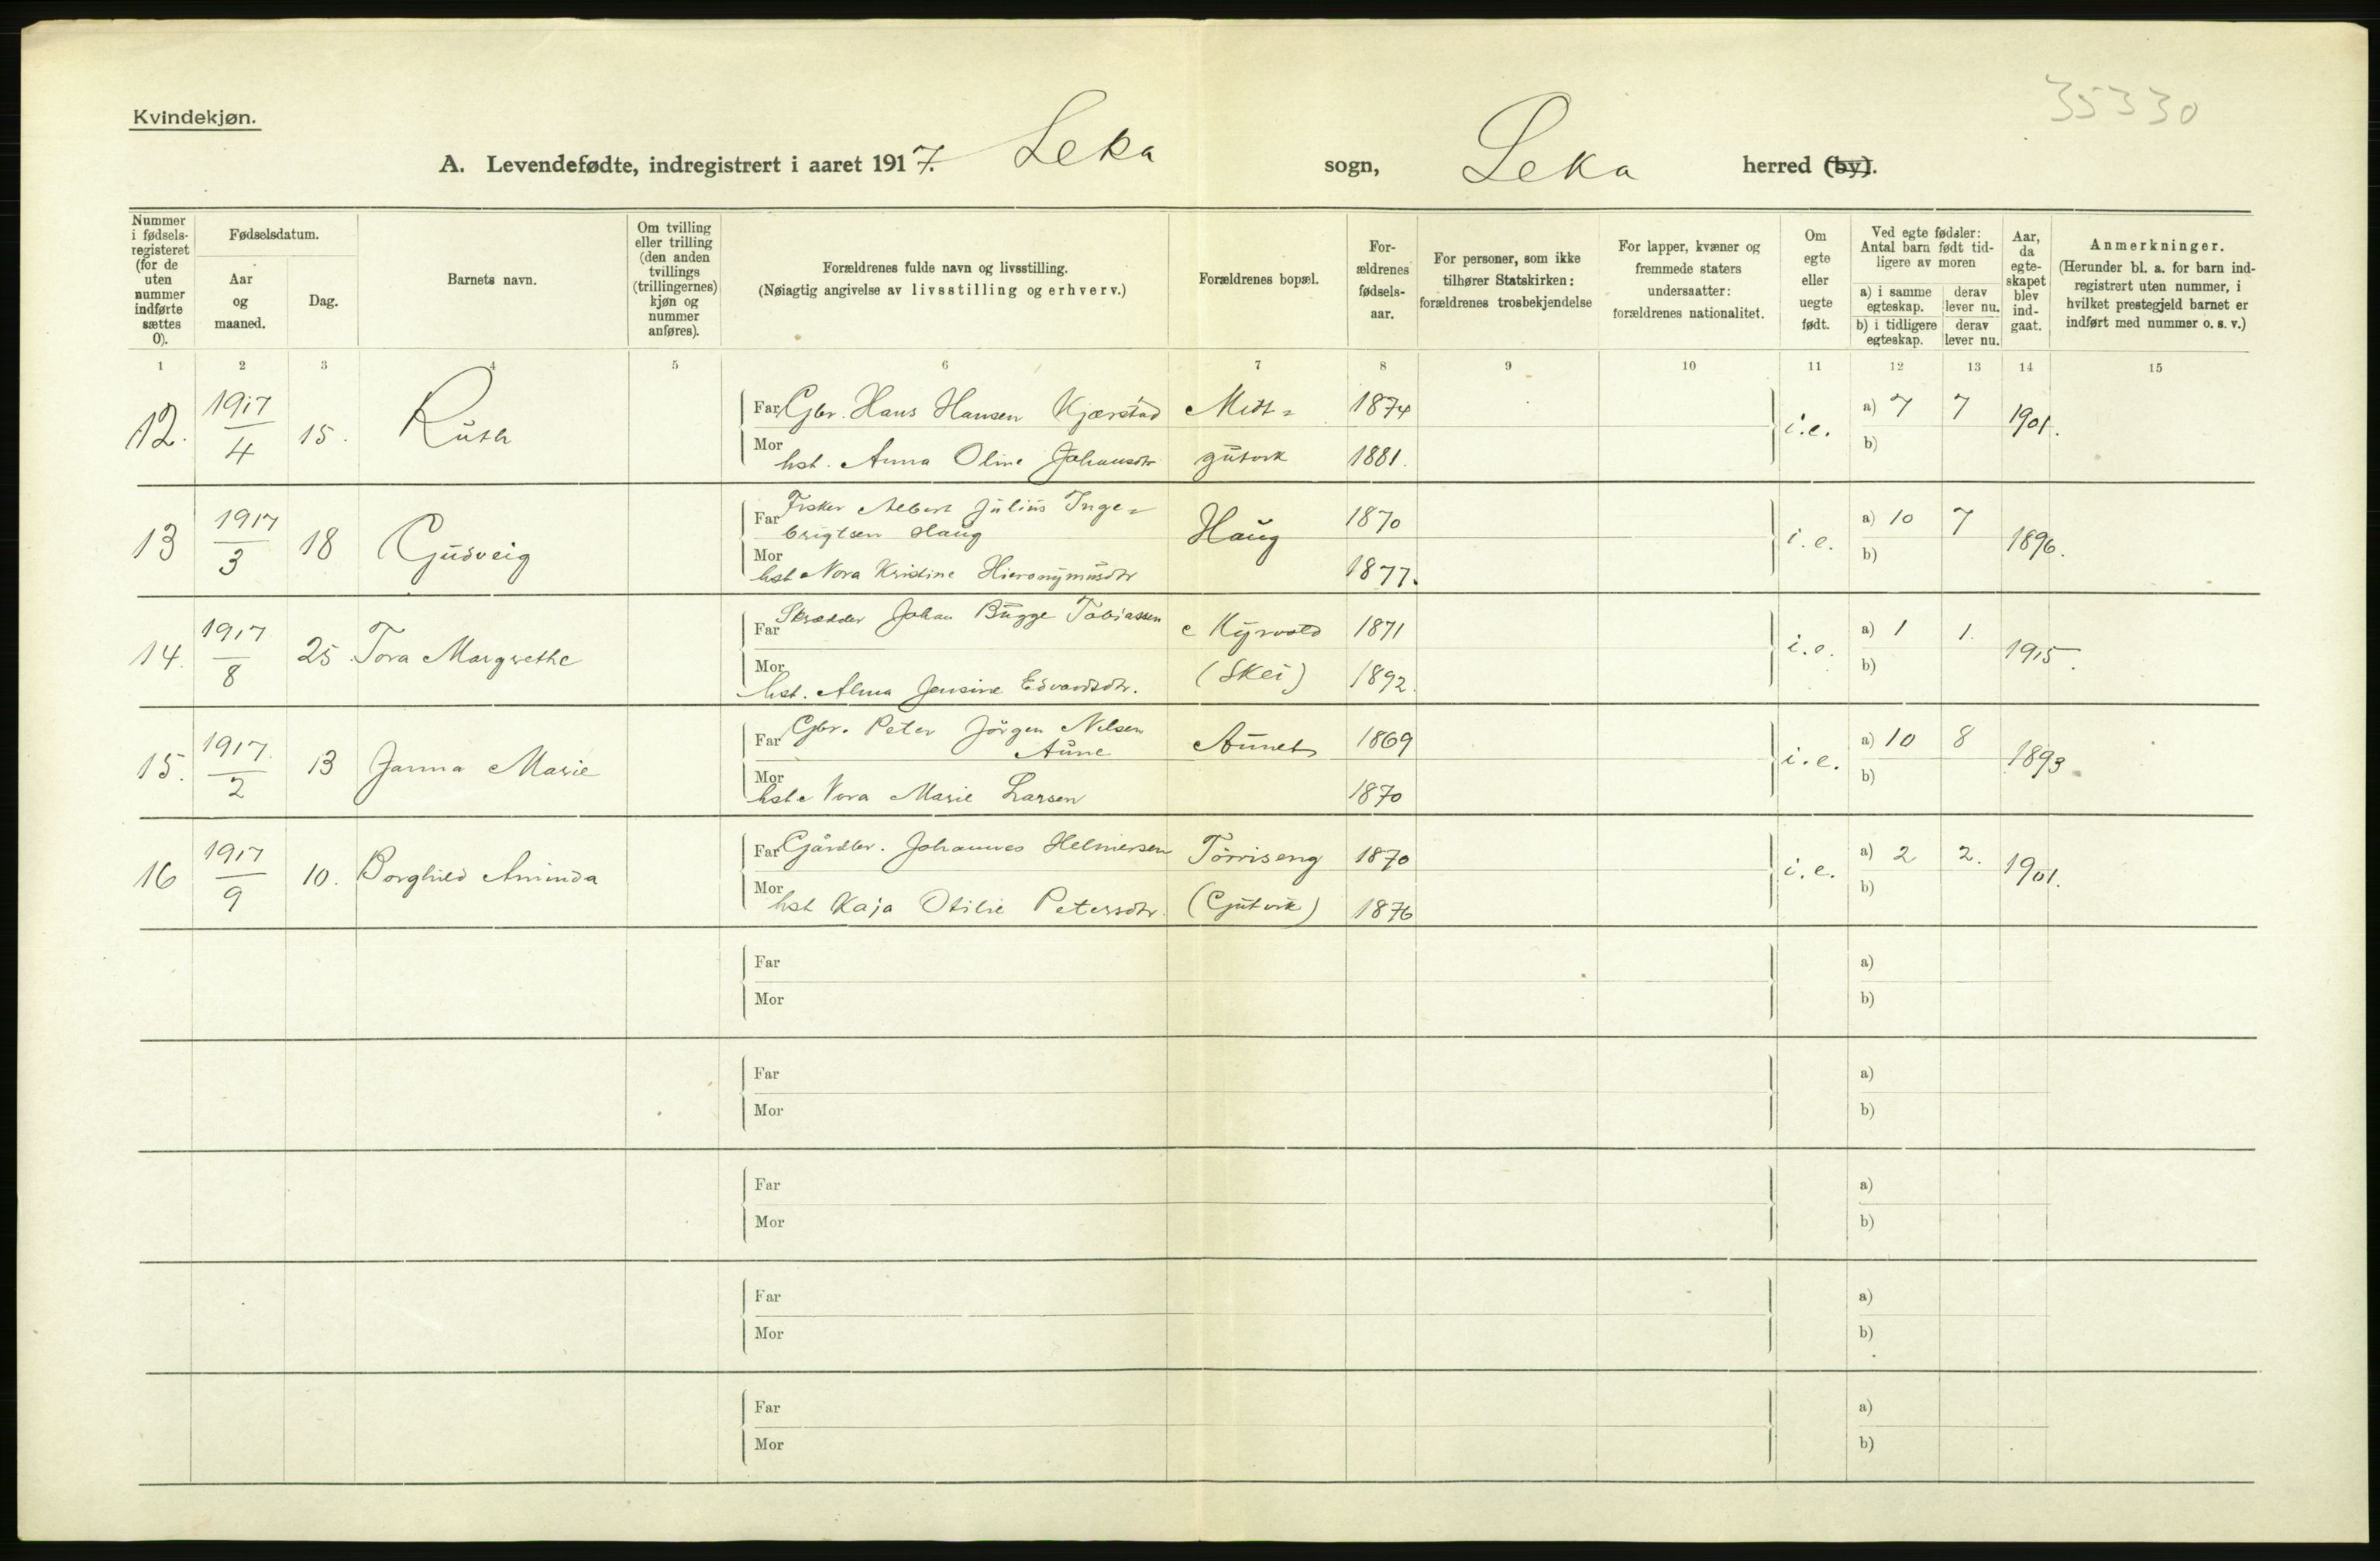 35330
Kvindekjøn.
A. Levendefødte, indregistrert i aaret 1917. Leka sogn, Leka herred (by).
Nummer i fødsels-registeret (for de uten nummer indførte sættes 0).
Fødselsdatum.
Aar og maaned.
Dag.
Barnets navn.
Om tvilling eller trilling (den anden tvillings (trillingernes) kjøn og nummer anføres).
Forældrenes fulde navn og livsstilling.
(Nøiagtig angivelse av livsstilling og erhverv.)
Forældrenes bopæl.
For-ældrenes fødsels-aar.
For personer, som ikke tilhører Statskirken: forældrenes trosbekjendelse
For lapper, kvæner og fremmede staters undersaatter: forældrenes nationalitet.
Om egte eller uegte født.
Ved egte fødsler: Antal barn født tid-ligere av moren
a) i samme egteskap. derav lever nu.
b) i tidligere egteskap. derav lever nu.
Aar, da egte-skapet blev ind-gaat.
Anmerkninger.
(Herunder bl. a. for barn ind-registrert uten nummer, i hvilket prestegjeld barnet er indført med nummer o. s. v.)
1 2 3 4 5 6 7 8 9 10 11 12 13 14 15
12. 1917/4 15. Ruth
Far Gbr. Hans Hansen Kjærstad Midt= 1874 i.e. a) 7 7 1901.
Mor hst. Anna Oline Johansdtr gutvik 1881. b)
13 1917/3 18 Gudveig
Far Fisker Albert Julius Inge=
brigtsen Haug Haug 1870 i.e. a) 10 7 1896.
Mor hst Nora Kristine Hieronymusdtr 1877. b)
14. 1917/8 25 Tora Margrethe
Far Skrædder Johan Bugge Tobiassen Kyrvold 1871 i.e. a) 1 1. 1915.
Mor hst. Alma Jensine Edvardsdtr. (Skei) 1892. b)
15. 1917/2 13 Janna Marie
Far Gbr. Peter Jörgen Nilsen
Aune Aunet 1869 i.e. a) 10 8 1893
Mor hst. Nora Marie Larsen 1870 b)
16 1917/9 10. Borghild Aminda
Far Gårdbr. Johannes Helmersen Törriseng 1870 i.e. a) 2 2. 1901.
Mor hst Kaja Otilie Petersdtr. (Gutvik) 1876 b)
Far a)
Mor b)
Far a)
Mor b)
Far a)
Mor b)
Far a)
Mor b)
Far a)
Mor b)